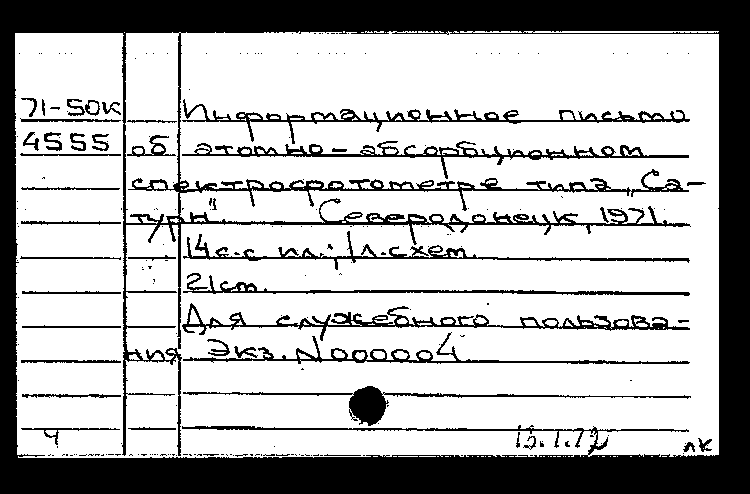 71-50к Информационное письмо
4555 об атомно-абсорбционном
спектрофотометре типа „Са-
турн". Северодонецк, 1971.
14с.с ил.; 1л.схем.
21см.
Для служебного пользова-
ния Экз. N000004
ч 13.1.72 лк